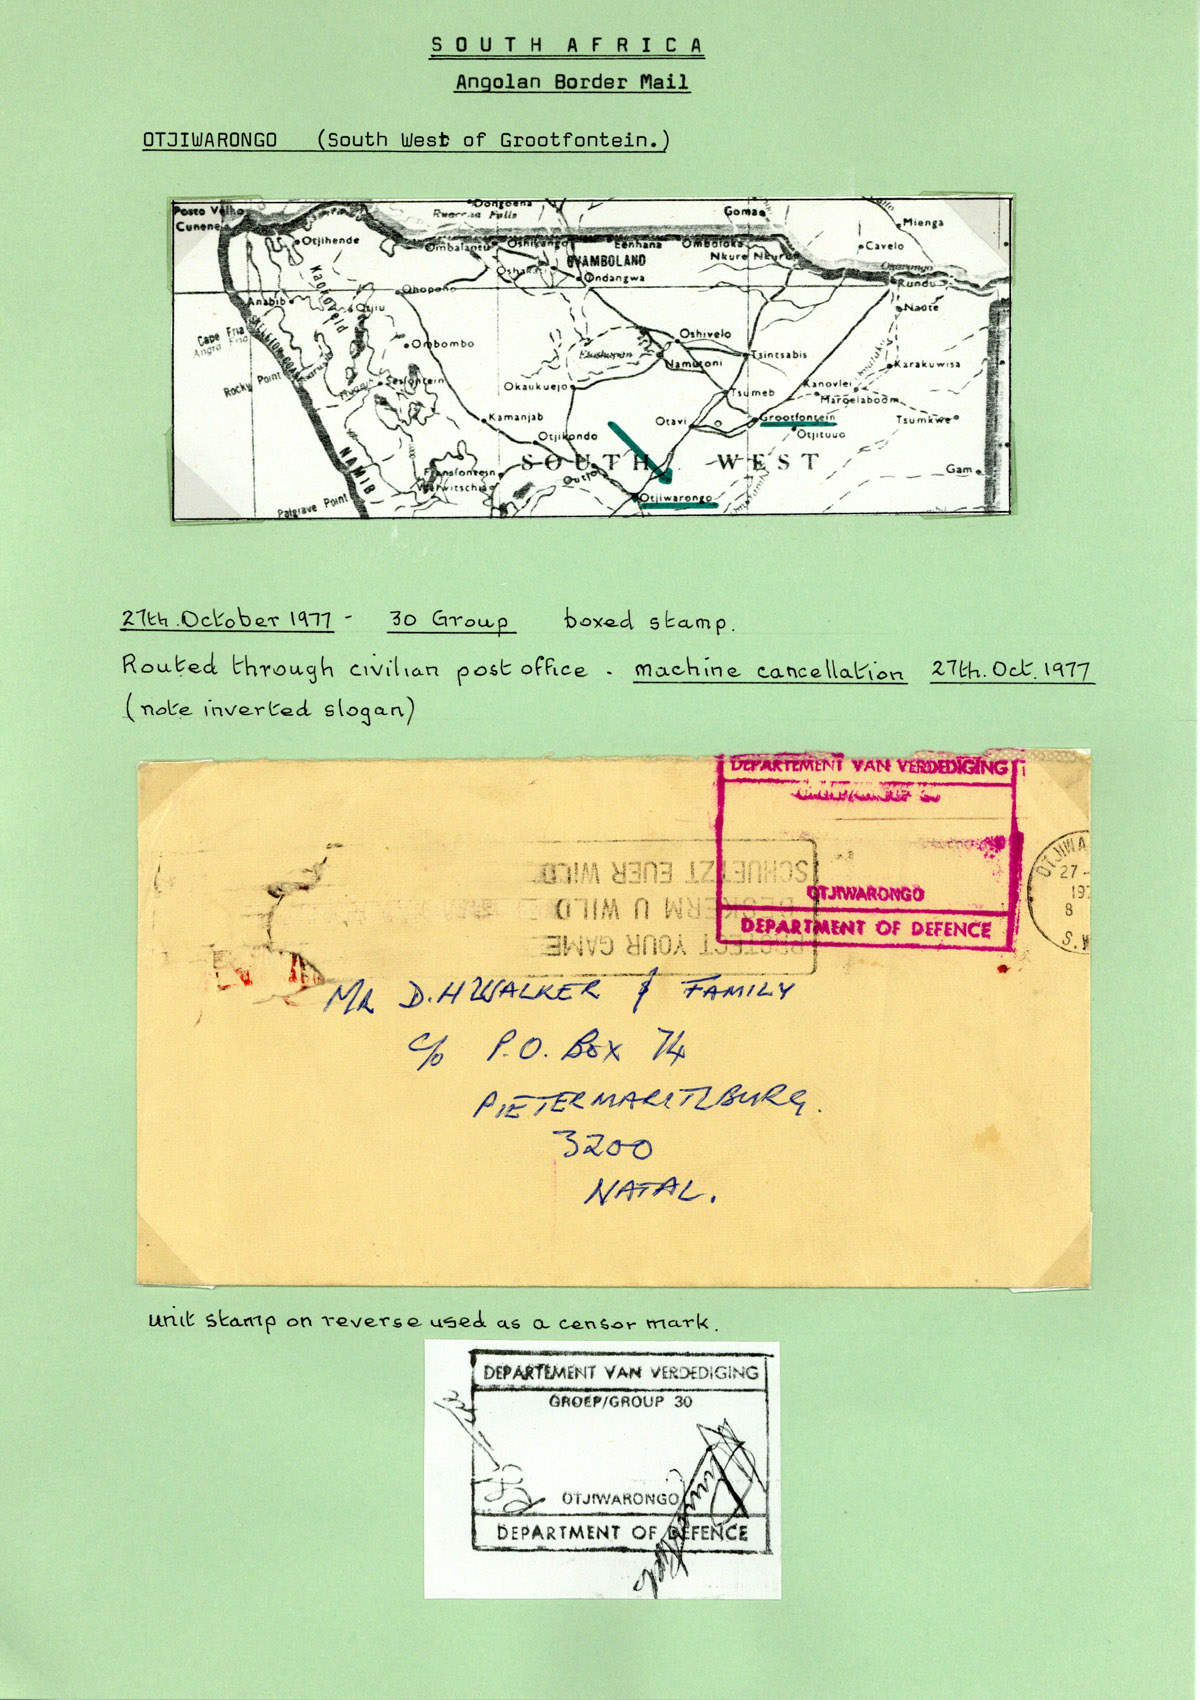 SOUTH AFRICA
Angolan Border Mail
OTJIWARONGO (South West of Grootfontein.)
Posto Velho
Dongoena
Ruacana Falls
Goma
Mienga
Cunene
Otjihende
Ombalantu
Oshikango
Eenhana
Omboloka
Cavelo
OVAMBOLAND
Nkure Nkuru
Okavango
Oshakati
Ondangwa
Rundu
Ohopoho
Kaokoveld
Anabib
Otjiu
Naute
Cape Fria
Angra Fria
SKELETON COAST
Ombombo
Oshivelo
Etoshapan
Namutoni
Tsintsabis
Karakuwisa
Rocky Point
Sesfontein
Okaukuejo
Tsumeb
Kanovlei
Maroelaboom
Kamanjab
Otavi
Grootfontein
Tsumkwe
Otjikondo
Otjituuo
NAMIB
SOUTH WEST
Fransfontein
Outjo
Gam
Welwitschia
Otjiwarongo
Palgrave Point
27th.October 1977 - 30 Group boxed stamp.
Routed through civilian post office - machine cancellation 27th.Oct.1977
(note inverted slogan)
DEPARTEMENT VAN VERDEDIGING
OTJIWARONGO
DEPARTMENT OF DEFENCE
SCHUETZT EUER WILD
BESKERM U WILD
PROTECT YOUR GAME
OTJIWA
27 -
197
8
S.W
MR D.H WALKER & FAMILY
c/o P.O. BOX 74
PIETERMARITZBURG.
3200
NATAL.
unit stamp on reverse used as a censor mark.
DEPARTEMENT VAN VERDEDIGING
GROEP/GROUP 30
OTJIWARONGO
DEPARTMENT OF DEFENCE